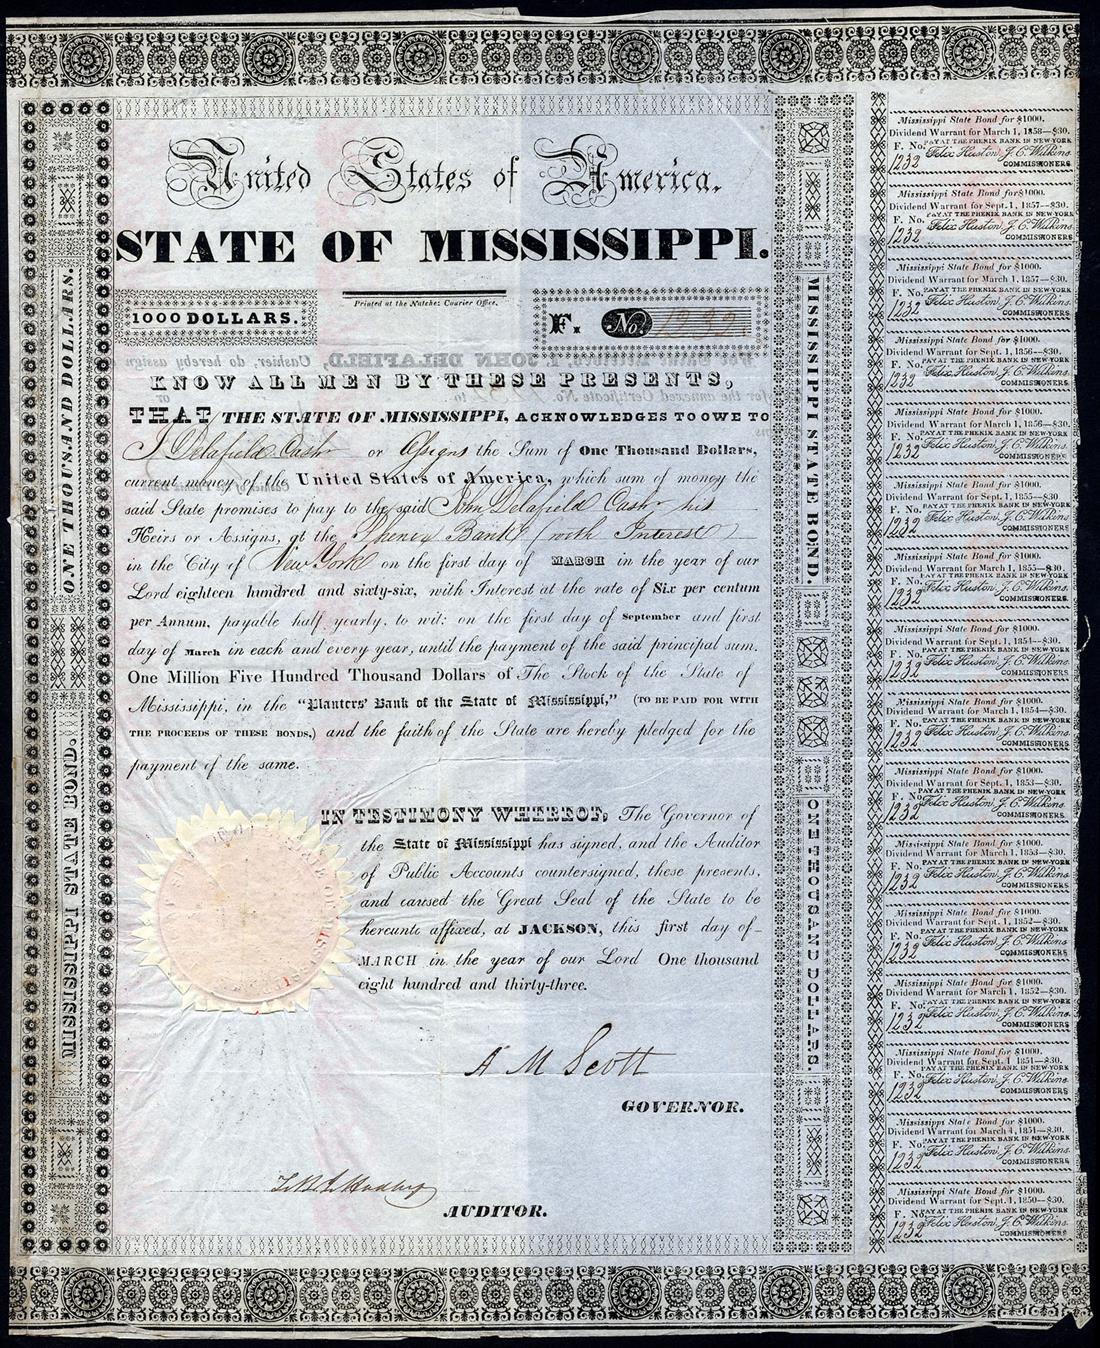 United States of America.
STATE OF MISSISSIPPI.
Printed at the Natchez Courier Office.
1000 DOLLARS.
F. No. 1232.
KNOW ALL MEN BY THESE PRESENTS,
THAT THE STATE OF MISSISSIPPI, ACKNOWLEDGES TO OWE TO
J Delafield Cashr or Assigns the Sum of One Thousand Dollars,
current money of the United States of America, which sum of money the
said State promises to pay to the said John Delafield Cashr his
Heirs or Assigns, at the Phenix Bank (with Interest)
in the City of New York on the first day of MARCH in the year of our
Lord eighteen hundred and sixty-six, with Interest at the rate of Six per centum
per Annum, payable half yearly, to wit; on the first day of September and first
day of March in each and every year, until the payment of the said principal sum.
One Million Five Hundred Thousand Dollars of The Stock of the State of
Mississippi, in the "Planters' Bank of the State of Mississippi," (TO BE PAID FOR WITH
THE PROCEEDS OF THESE BONDS,) and the faith of the State are hereby pledged for the
payment of the same.
IN TESTIMONY WHEREOF, The Governor of
the State of Mississippi has signed, and the Auditor
of Public Accounts countersigned, these presents,
and caused the Great Seal of the State to be
hereunto affixed, at JACKSON, this first day of
MARCH in the year of our Lord One thousand
eight hundred and thirty-three.
A M Scott
GOVERNOR.
AUDITOR.
ONE THOUSAND DOLLARS.
MISSISSIPPI STATE BOND.
MISSISSIPPI STATE BOND.
ONE THOUSAND DOLLARS.
Mississippi State Bond for $1000.
Dividend Warrant for March 1, 1858—$30.
F. No. PAY AT THE PHENIX BANK IN NEW-YORK
1232 Felix Huston, J. C. Wilkins
COMMISSIONERS
Mississippi State Bond for $1000.
Dividend Warrant for Sept. 1, 1857—$30.
PAY AT THE PHENIX BANK IN NEW-YORK
F. No. Felix Huston, J. C. Wilkins
1232 COMMISSIONERS
Mississippi State Bond for $1000.
Dividend Warrant for March 1, 1857—$30.
F. No. PAY AT THE PHENIX BANK IN NEW-YORK
1232 Felix Huston, J. C. Wilkins
COMMISSIONERS
Mississippi State Bond for $1000.
Dividend Warrant for Sept. 1, 1856—$30.
F. No. PAY AT THE PHENIX BANK IN NEW-YORK
1232 Felix Huston, J. C. Wilkins
COMMISSIONERS
Mississippi State Bond for $1000.
Dividend Warrant for March 1, 1856—$30.
F. No. PAY AT THE PHENIX BANK IN NEW-YORK
1232 Felix Huston, J. C. Wilkins
COMMISSIONERS
Mississippi State Bond for $1000.
Dividend Warrant for Sept. 1, 1855—$30.
F. No. PAY AT THE PHENIX BANK IN NEW-YORK
1232 Felix Huston, J. C. Wilkins
COMMISSIONERS
Mississippi State Bond for $1000.
Dividend Warrant for March 1, 1855—$30.
F. No. PAY AT THE PHENIX BANK IN NEW-YORK
1232 Felix Huston, J. C. Wilkins
COMMISSIONERS
Mississippi State Bond for $1000.
Dividend Warrant for Sept. 1, 1854—$30.
F. No. PAY AT THE PHENIX BANK IN NEW-YORK
1232 Felix Huston, J. C. Wilkins
COMMISSIONERS
Mississippi State Bond for $1000.
Dividend Warrant for March 1, 1854—$30.
F. No. PAY AT THE PHENIX BANK IN NEW-YORK
1232 Felix Huston, J. C. Wilkins
COMMISSIONERS
Mississippi State Bond for $1000.
Dividend Warrant for Sept. 1, 1853—$30.
F. No. PAY AT THE PHENIX BANK IN NEW-YORK
1232 Felix Huston, J. C. Wilkins
COMMISSIONERS
Mississippi State Bond for $1000.
Dividend Warrant for March 1, 1853—$30.
F. No. PAY AT THE PHENIX BANK IN NEW-YORK
1232 Felix Huston, J. C. Wilkins
COMMISSIONERS
Mississippi State Bond for $1000.
Dividend Warrant for Sept. 1, 1852—$30.
F. No. PAY AT THE PHENIX BANK IN NEW-YORK
1232 Felix Huston, J. C. Wilkins
COMMISSIONERS
Mississippi State Bond for $1000.
Dividend Warrant for March 1, 1852—$30.
F. No. PAY AT THE PHENIX BANK IN NEW-YORK
1232 Felix Huston, J. C. Wilkins
COMMISSIONERS
Mississippi State Bond for $1000.
Dividend Warrant for Sept. 1, 1851—$30.
F. No. PAY AT THE PHENIX BANK IN NEW-YORK
1232 Felix Huston, J. C. Wilkins
COMMISSIONERS
Mississippi State Bond for $1000.
Dividend Warrant for March 1, 1851—$30.
F. No. PAY AT THE PHENIX BANK IN NEW-YORK
1232 Felix Huston, J. C. Wilkins
COMMISSIONERS
Mississippi State Bond for $1000.
Dividend Warrant for Sept. 1, 1850—$30.
F. No. PAY AT THE PHENIX BANK IN NEW-YORK
1232 Felix Huston, J. C. Wilkins
COMMISSIONERS